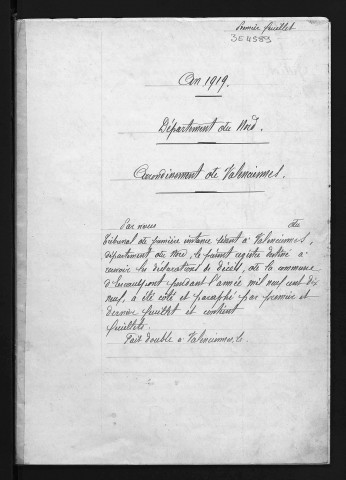 Premier feuillet
3E 4989
An 1919.
Département du Nord.
Arrondissement de Valenciennes.
Par nous du
Tribunal de première instance séant à Valenciennes,
département du Nord, le présent registre destiné à
recevoir les déclarations de décès, de la commune
d'Escautpont pendant l'année mil neuf cent dix
neuf, à été coté et paraphé par premier et
dernier feuillet et contient
feuillets.
Fait double à Valenciennes, le